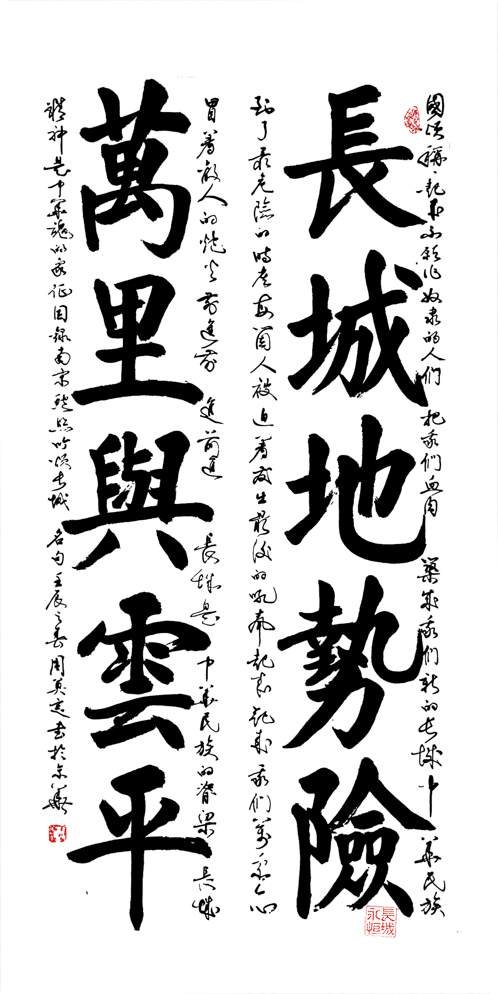 起来不願作奴隶的人们 把我们血肉 築成我们新的长城 中華民族
長城地勢險
到了最危險的時候每個人被迫着發出最後的吼聲起來起來我们萬眾一心
冒着敵人的炮火前進前進前進 長城是 中華民族的脊梁 長城
萬里與雲平
精神是中華魂的象征因錄南宋 吟頌长城 名句 壬辰之春周 書於京華
長城永恒